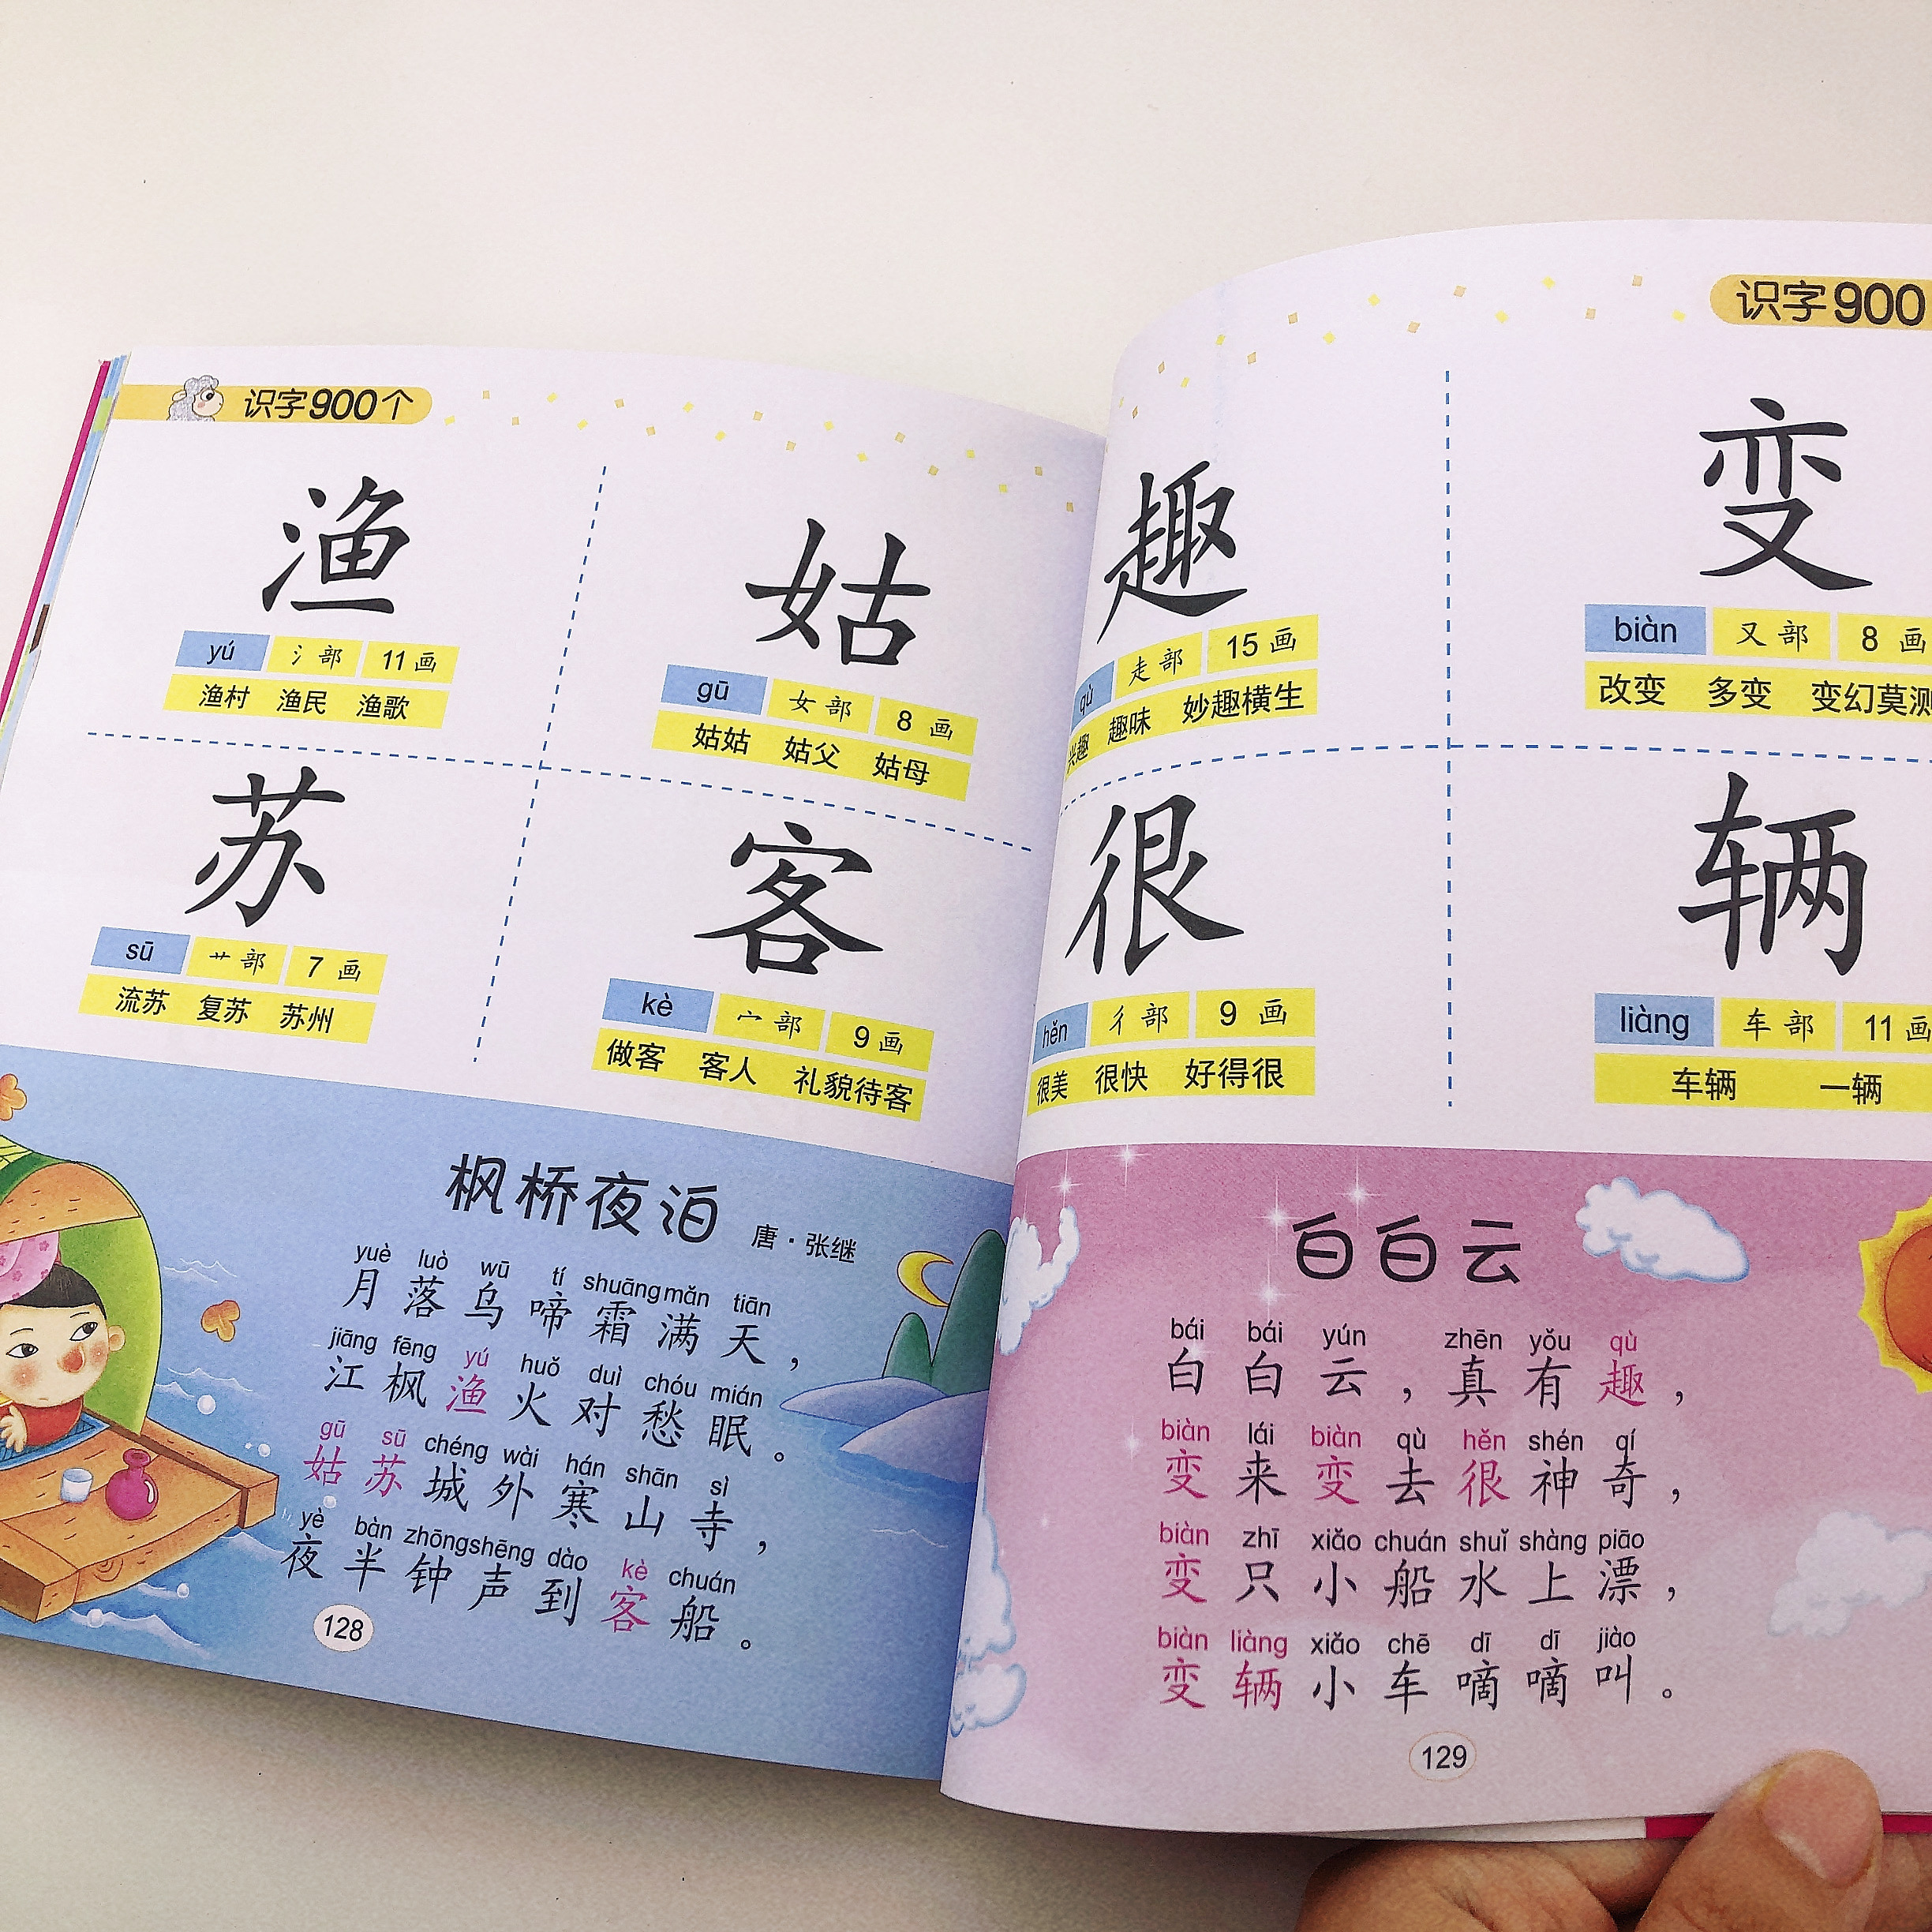 识字900个
渔
yú 氵部 11画
渔村 渔民 渔歌
姑
gū 女部 8画
姑姑 姑父 姑母
苏
sū 艹部 7画
流苏 复苏 苏州
客
kè 宀部 9画
做客 客人 礼貌待客
枫桥夜泊 唐·张继
yuè luò wū tí shuāng mǎn tiān
月落乌啼霜满天，
jiāng fēng yú huǒ duì chóu mián
江枫渔火对愁眠。
gū sū chéng wài hán shān sì
姑苏城外寒山寺，
yè bàn zhōng shēng dào kè chuán
夜半钟声到客船。
128
识字900
趣
qù 走部 15画
兴趣 趣味 妙趣横生
变
biàn 又部 8画
改变 多变 变幻莫测
很
hěn 彳部 9画
很美 很快 好得很
辆
liàng 车部 11画
车辆 一辆
白白云
bái bái yún zhēn yǒu qù
白白云，真有趣，
biàn lái biàn qù hěn shén qí
变来变去很神奇，
biàn zhī xiǎo chuán shuǐ shàng piāo
变只小船水上漂，
biàn liàng xiǎo chē dī dī jiào
变辆小车嘀嘀叫。
129